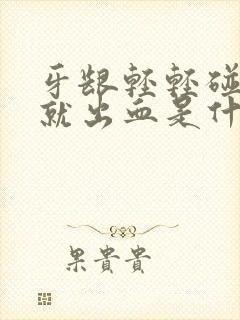 牙龈轻轻碰
就出血是什
果贵贵